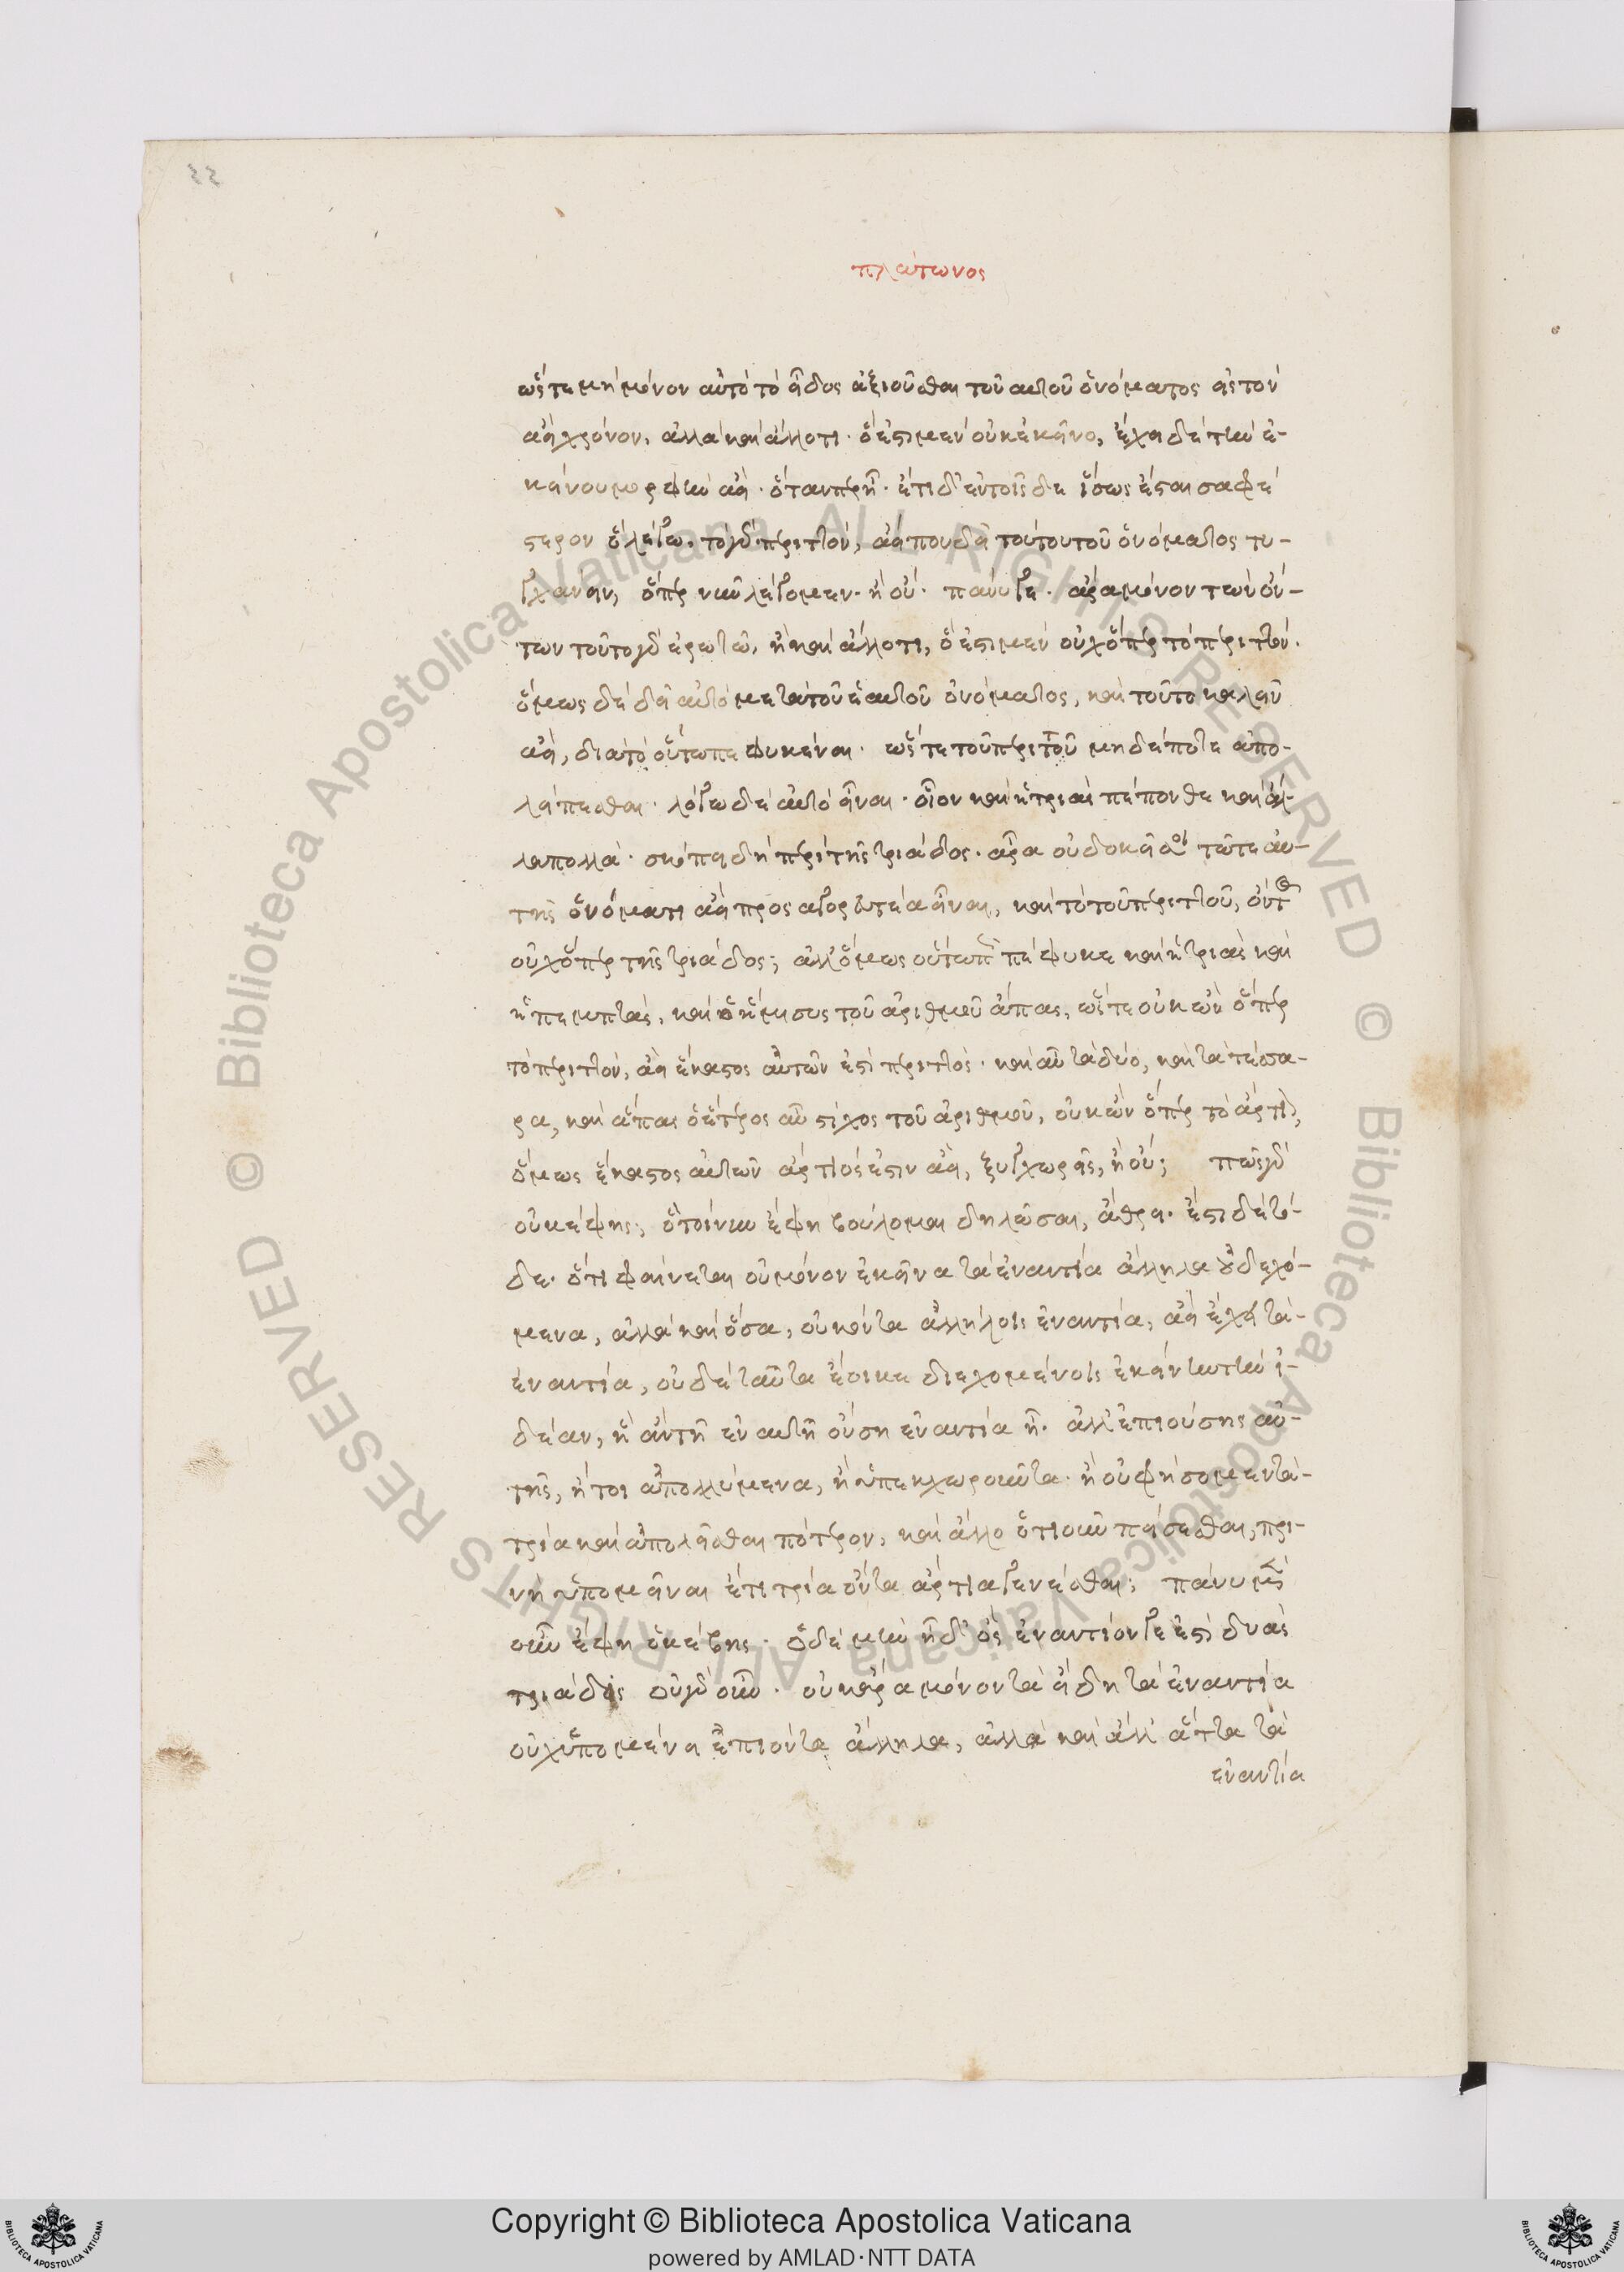 22
πλάτωνος
ὥστε μὴ μόνον αὐτὸ τὸ εἶδος ἀξιοῦσθαι τοῦ αυτοῦ ὀνόματος εἰς τὸν
ἀεὶ χρόνον, ἀλλὰ καὶ ἄλλό τι· ὅ ἐστι μὲν οὐκ ἐκεῖνο, ἔχει δὲ τὴν ἐ-
κείνου μορφὴν ἀεὶ· ὅταν περ ᾖ· ἔτι δ' ἐν τοῖς δε ἴσως ἔσται σαφέ
στερον ὃ λέγω. τὸ γὰρ περιττὸν, ἀεί που δεῖ τούτου τοῦ ὀνόματος τυ-
γχάνειν, ὅπερ νῦν λέγομεν· ἢ οὔ· πάνυ γε· ἆρα μόνον τῶν ὄν-
των τοῦτο γὰρ ἐρωτῶ, ἢ καὶ ἄλλό τι, ὅ ἐστι μὲν οὐχ ὅπερ τὸ περιττόν.
ὅμως δὲ δεῖ αὐτὸ μετὰ τοῦ ἑαυτοῦ ὀνόματος, καὶ τοῦτο καλεῖν
ἀεὶ, διὰ τὸ οὕτω πεφυκέναι· ὥστε τοῦ περιττοῦ μηδέποτε ἀπο-
λείπεσθαι· λέγω δὲ αὐτὸ εἶναι· οἷον καὶ ἡ τριὰς πέπονθε καὶ ἄλ-
λα πολλά· σκόπει δὴ περὶ τῆς τριάδος· ἆρα οὐ δοκεῖ σοὶ τῶ τε αὐ-
τῆς ὀνόματι ἀεὶ προσαγορευτέα εἶναι, καὶ τὸ τοῦ περιττοῦ, ὄντος
οὐχ ὅπερ τῆς τριάδος; ἀλλ' ὅμως οὕτω πως πέφυκε καὶ ἡ τριὰς καὶ
ἡ πεμπτὰς, καὶ ὁ ἥμισυς τοῦ ἀριθμοῦ ἅπας, ὥστε οὐκ ὢν ὅπερ
τὸ περιττὸν, ἀεὶ ἕκαστος αὐτῶν ἐστὶ περιττός· καὶ αὖ τὰ δύο, καὶ τὰ τέσσα-
ρα, καὶ ἅπας ὁ ἕτερος αὖ στίχος τοῦ ἀριθμοῦ, οὐκ ὢν ὅπερ τὸ ἄρτιον,
ὅμως ἕκαστος αὐτῶν ἄρτιός ἐστιν ἀεὶ, ξυγχωρεῖς, ἢ οὔ; πῶς γὰρ
οὐκ ἔφης; ὃ τοίνυν ἔφη βούλομαι δηλῶσαι, ἄθρει· ἔστι δὲ τό-
δε· ὅτι φαίνεται οὐ μόνον ἐκεῖνα τὰ ἐναντία ἄλληλα οὐ δεχό-
μενα, ἀλλὰ καὶ ὅσα, οὐκ ὄντα ἀλλήλοις ἐναντία, ἀεὶ ἔχει τὰ-
ἐναντία, οὐδὲ ταῦτα ἔοικε δεχομένοις ἐκείνην τὴν ἰ-
δέαν, ἣ ἂν τῆ ἐν αυτῆ οὔση ἐναντία ᾖ· ἀλλ' ἐπιούσης αὐ-
τῆς, ἤτοι ἀπολλύμενα, ἢ ὑπεκχωροῦντα· ἢ οὐ φήσομεν τὰ-
τρία καὶ ἀπολεῖσθαι πότερον, καὶ ἄλλο ὁτιοῦν πείσεσθαι, πρι-
νὴ ὑπομεῖναι ἔτι τρία ὄντα ἄρτια γενέσθαι; πάνυ μὲν
οὖν ἔφη ὁ κέβης· οὐδὲ μὴν ἦ δ' ὃς ἐναντίον γε ἐστὶ δυὰς
τριάδος οὐ γὰρ οὖν· οὐκ ἄρα μόνον τὰ εἴδη τὰ ἐναντία
οὐχ ὑπομένει ἐπιόντα ἄλληλα, ἀλλὰ καὶ ἄλλ' ἄττα τὰ
ἐναντία
Copyright © Biblioteca Apostolica Vaticana
powered by AMLAD·NTT DATA